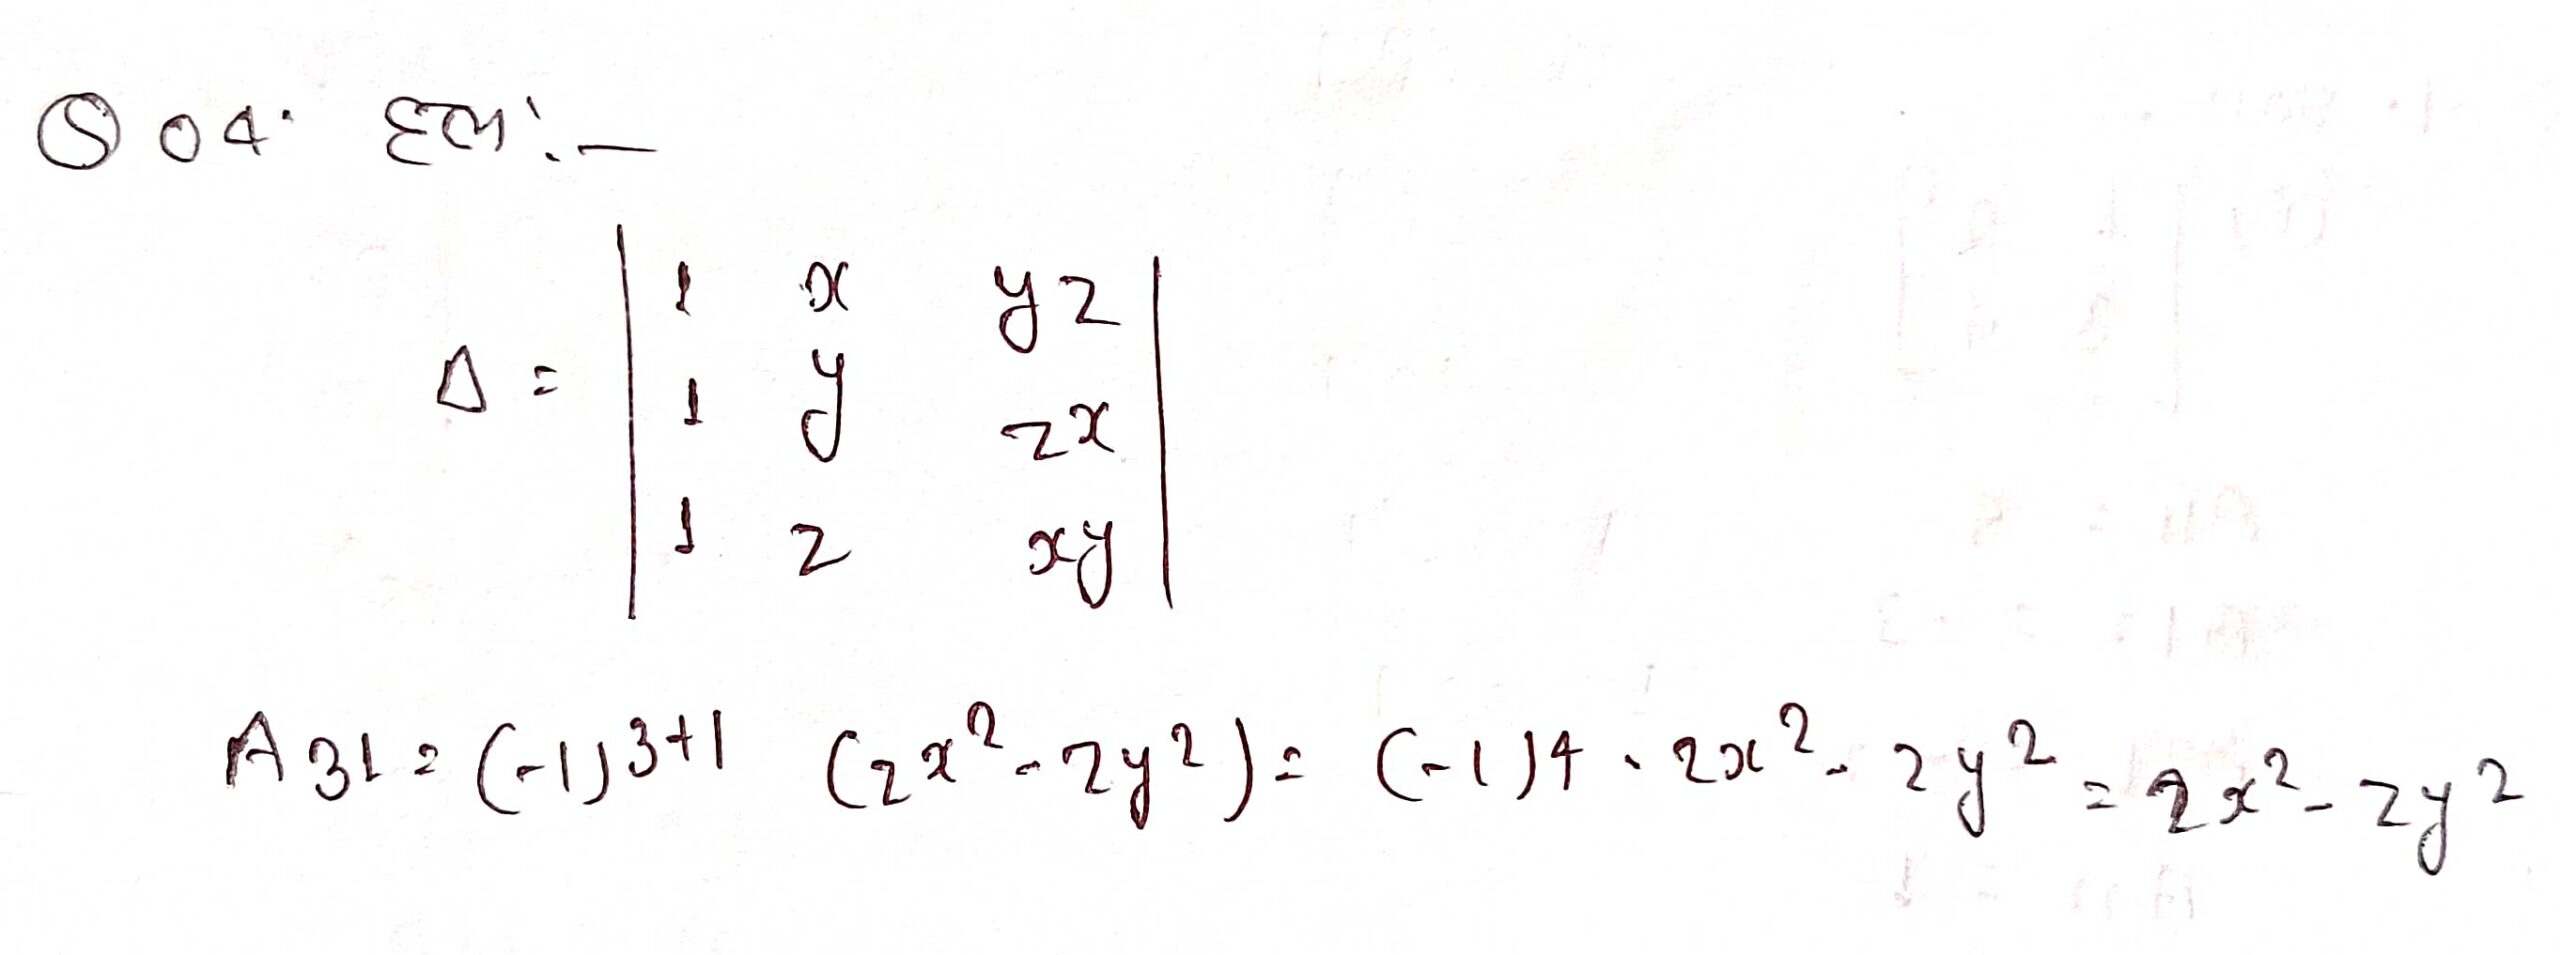 Ⓢ 04. हल :—
Δ = | 1 x yz |
| 1 y zx |
| 1 z xy |
A31 = (-1)3+1 (zx² - zy²) = (-1)4 . zx² - zy² = zx² - zy²